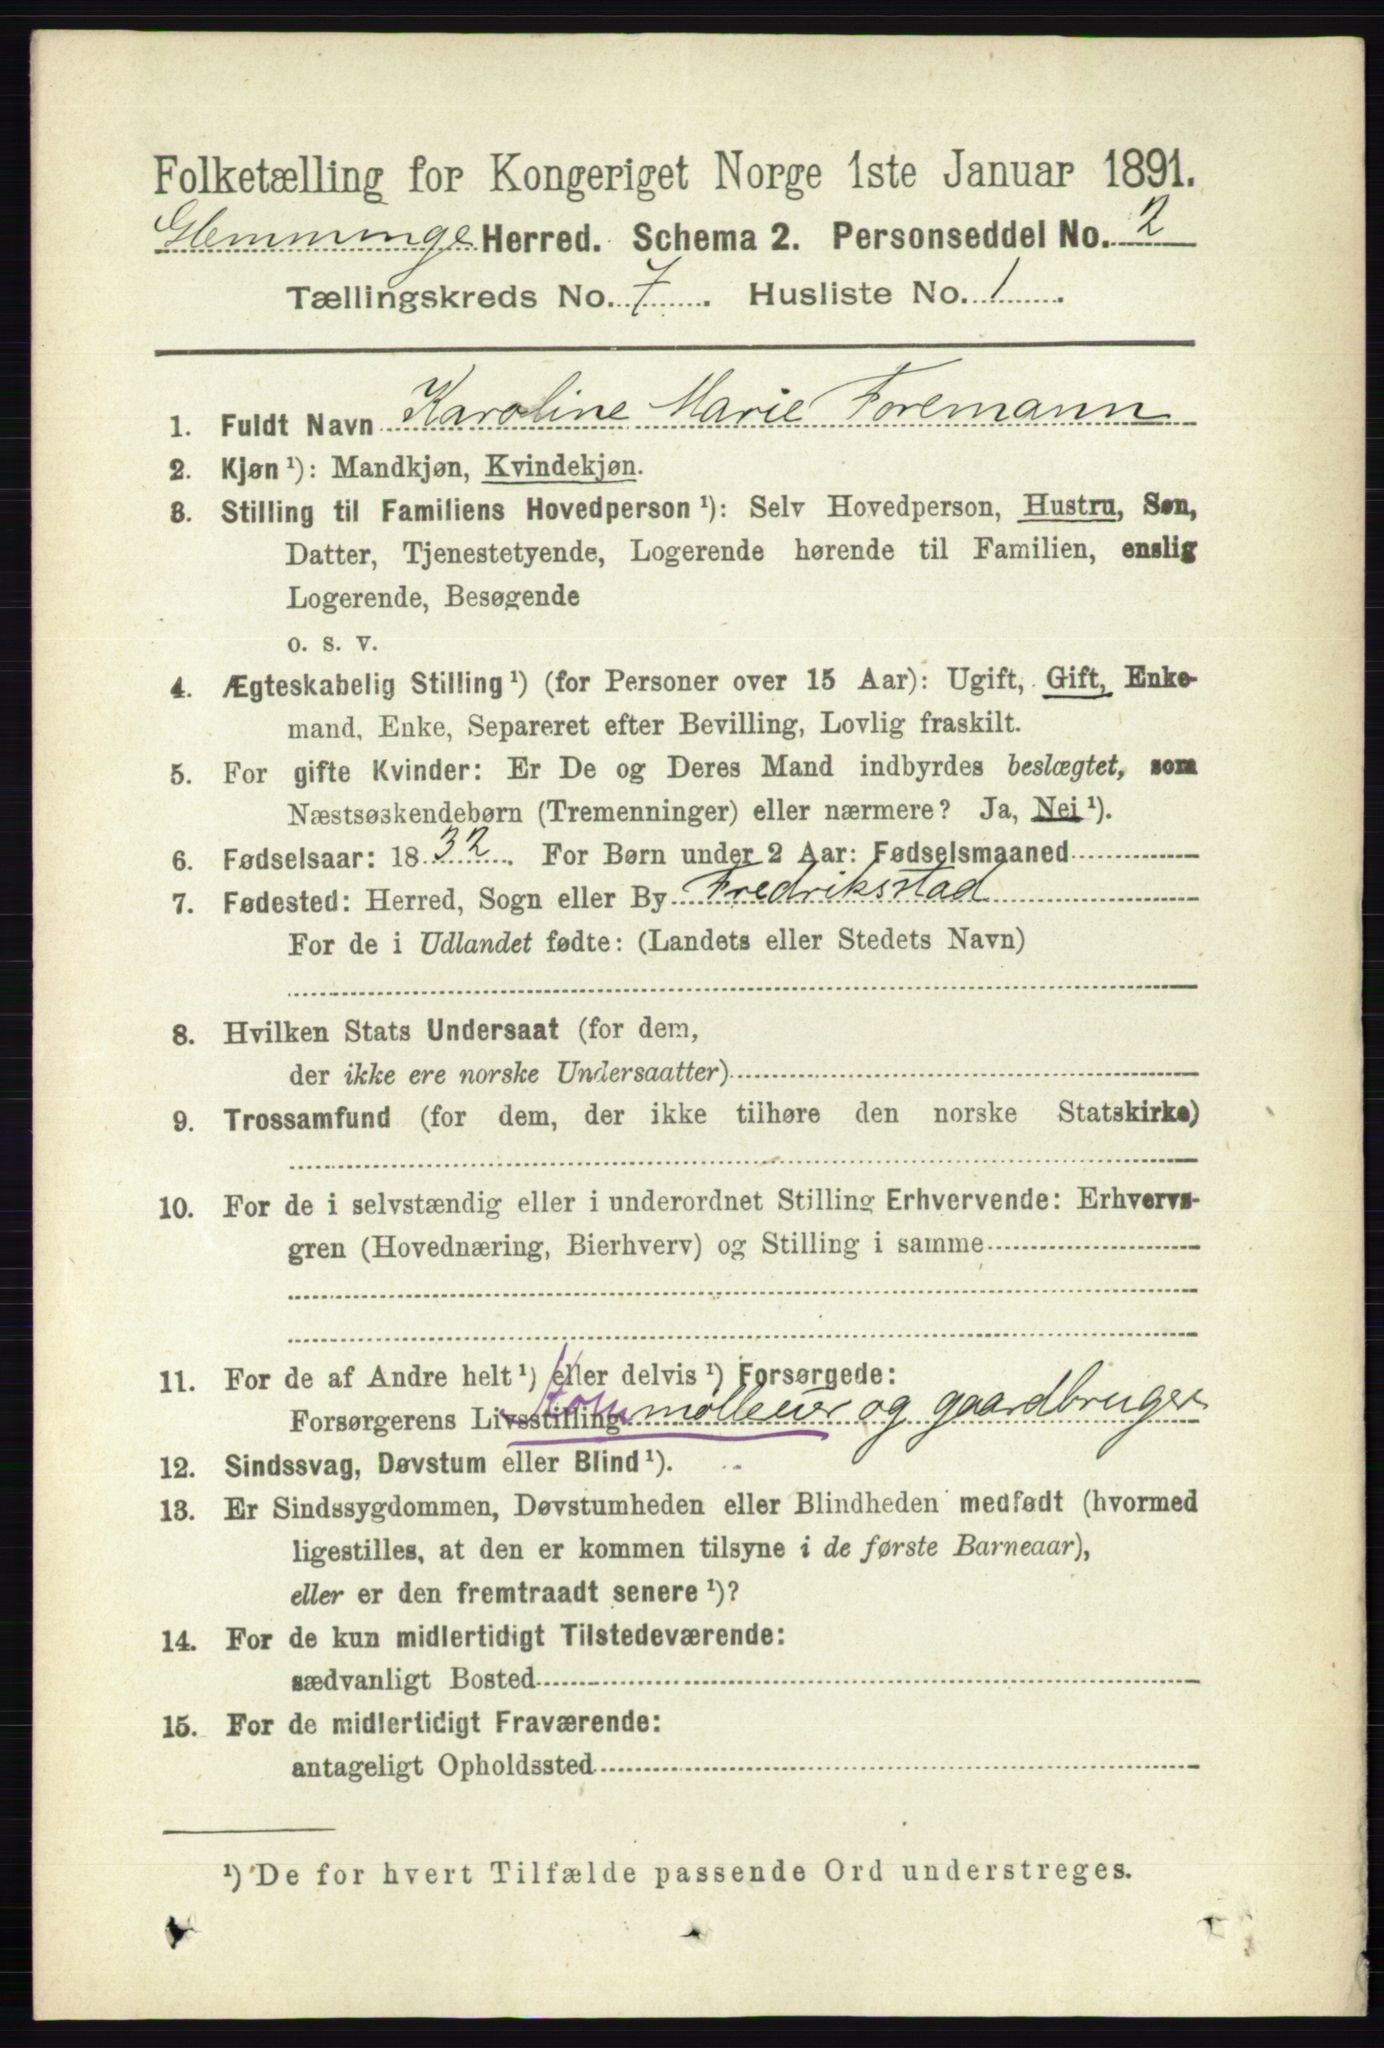 Folketælling for Kongeriget Norge 1ste Januar 1891.
Glemminge Herred. Schema 2. Personseddel No. 2
Tællingskreds No. 7. Husliste No. 1.
1. Fuldt Navn Karoline Marie Foremann
2. Kjøn ¹): Mandkjøn, Kvindekjøn.
3. Stilling til Familiens Hovedperson ¹): Selv Hovedperson, Hustru, Søn,
Datter, Tjenestetyende, Logerende hørende til Familien, enslig
Logerende, Besøgende
o. s. v.
4. Ægteskabelig Stilling ¹) (for Personer over 15 Aar): Ugift, Gift, Enke-
mand, Enke, Separeret efter Bevilling, Lovlig fraskilt.
5. For gifte Kvinder: Er De og Deres Mand indbyrdes beslægtet, som
Næstsøskendebørn (Tremenninger) eller nærmere? Ja, Nei ¹).
6. Fødselsaar: 1832. For Børn under 2 Aar: Fødselsmaaned
7. Fødested: Herred, Sogn eller By Fredriksstad
For de i Udlandet fødte: (Landets eller Stedets Navn)
8. Hvilken Stats Undersaat (for dem,
der ikke ere norske Undersaatter)
9. Trossamfund (for dem, der ikke tilhøre den norske Statskirke)
10. For de i selvstændig eller i underordnet Stilling Erhvervende: Erhvervs-
gren (Hovednæring, Bierhverv) og Stilling i samme
11. For de af Andre helt ¹) eller delvis ¹) Forsørgede:
Forsørgerens Livsstilling Korn mølleier og gaardbruger
12. Sindssvag, Døvstum eller Blind ¹).
13. Er Sindssygdommen, Døvstumheden eller Blindheden medfødt (hvormed
ligestilles, at den er kommen tilsyne i de første Barneaar),
eller er den fremtraadt senere ¹)?
14. For de kun midlertidigt Tilstedeværende:
sædvanligt Bosted
15. For de midlertidigt Fraværende:
antageligt Opholdssted
¹) De for hvert Tilfælde passende Ord understreges.